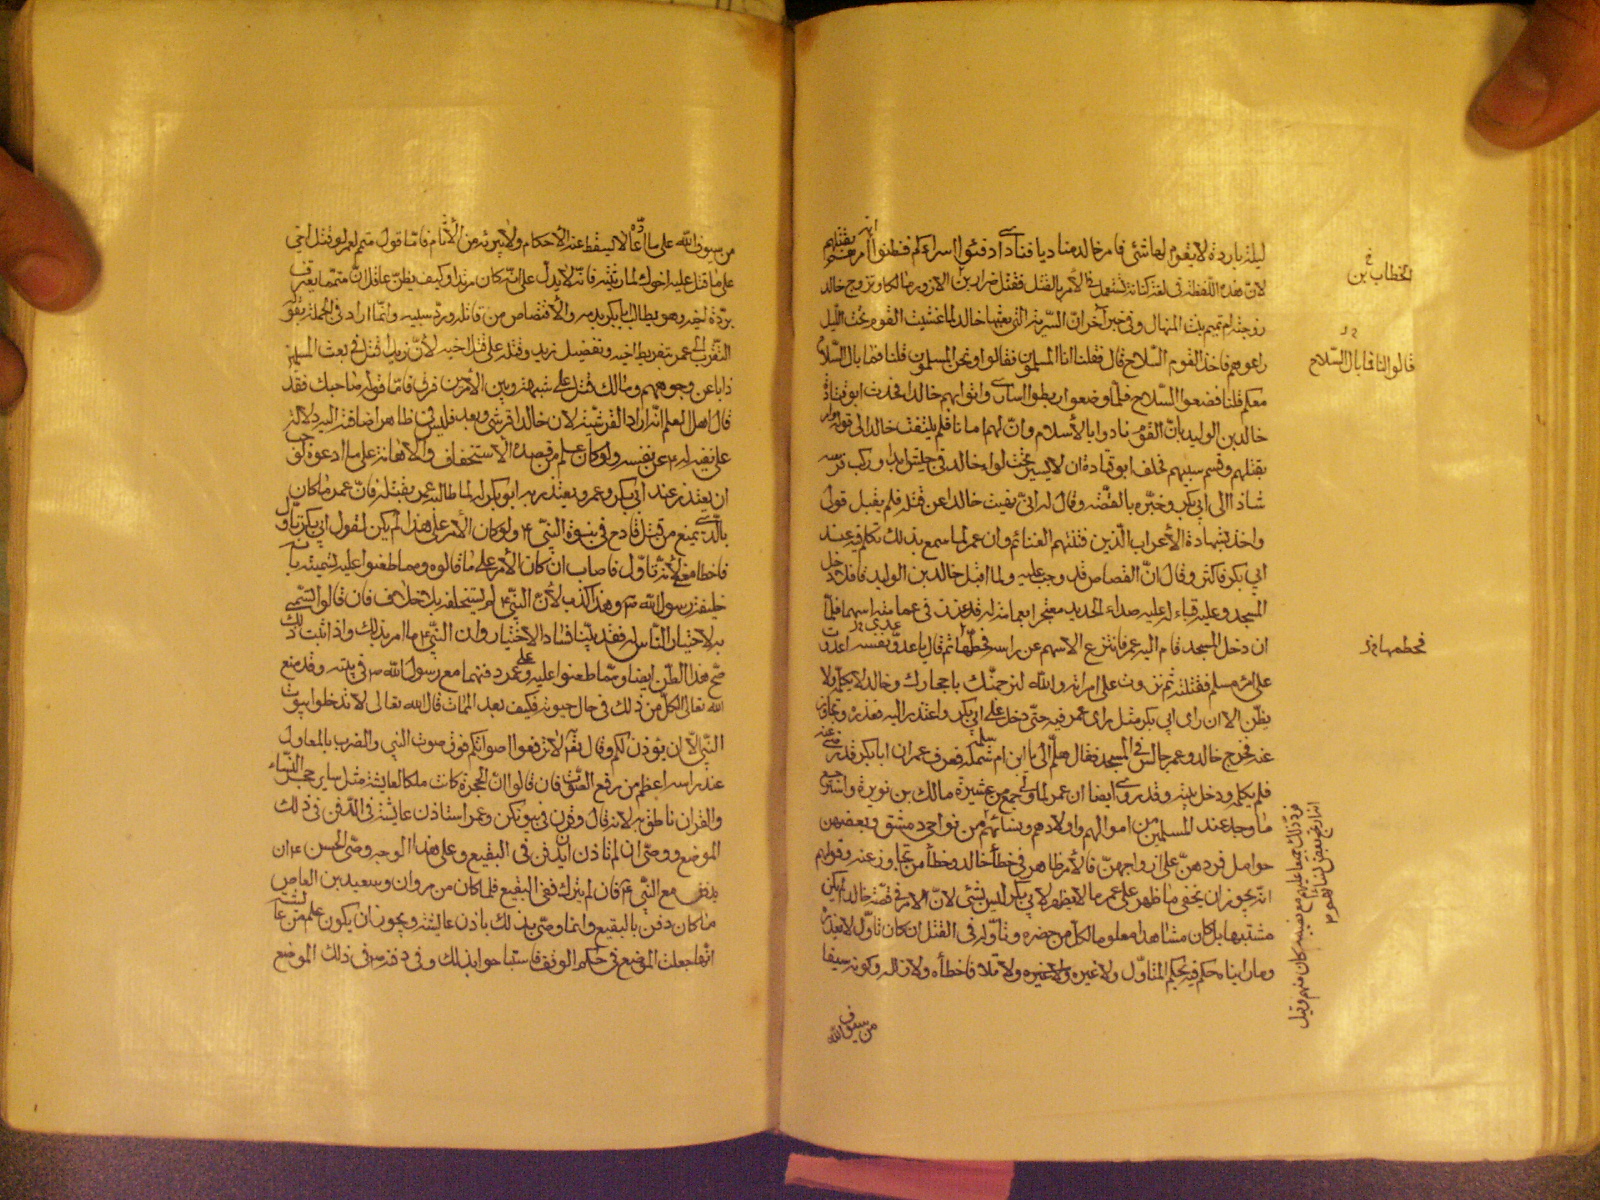 ليلة باردة لا يقوم لها شئ فامر خالد مناديا فنادى ادفئوا اسراءكم فظنوا انهم امر بقتلهم
لان هذه اللفظة في لغة كنانة تستعمل في الأمر بالقتل فقتل ضرار بن الازور مالكا وتزوج خالد
زوجته ام تميم بنت المنهال وفي خبر آخر ان السرية التي بعثها خالد لما غشيت القوم تحت الليل
راعوهم فاخذ القوم السلاح قال فقلنا انا المسلمون فقالوا ونحن المسلمون قلنا فما بال السلاح
معكم قلنا فضعوا السلاح فلما وضعوا ربطوا اسارى واتوا بهم خالدا فحدث ابو قتادة
خالد بن الوليد بان القوم نادوا بالأسلام وان لهم امانا فلم يلتفت خالد الى قوله وامر
بقتلهم وقسم سبيهم فحلف ابو قتادة ان لا يسير تحت لواء خالد في جيش ابدا وركب فرسه
شاذا الى ابي بكر وخبره بالقصة وقال له اني نهيت خالدا عن قتله فلم يقبل قولي
واخذ بشهادة الأعراب الذين فتنتهم الغنائم وان عمر لما سمع بذلك تكلم فيه عند
ابي بكر فاكثر وقال ان القصاص قد وجب عليه ولما اقبل خالد بن الوليد قافلا دخل
المسجد وعليه قباء له عليه صداء الحديد معتجرا بعمامة له قد غرز في عمامته اسهما فلما
ان دخل المسجد قام اليه عمر فانتزع الاسهم عن راسه فحطمها ثم قال يا عدو نفسه اعدوت
على امرئ مسلم فقتلته ثم نزوت على امراته والله لنرجمنك باحجارك وخالد لا يكلمه ولا
يظن الا ان راى ابي بكر مثل راى عمر فيه حتى دخل على ابي بكر واعتذر اليه فعذره وتجاوز
عنه فخرج خالد وعمر جالس في المسجد فقال هلم الى يا ابن ام شملة فعرف عمر ان ابا بكر قد رضى عنه
فلم يكلمه ودخل بيته وقد روى ايضا ان عمر لما ولى جمع من عشيرة مالك بن نويرة واسترجع
ما وجد عند المسلمين من اموالهم واولادهم ونسائهم من نواحى دمشق وبعضهن
حوامل فردهن على ازواجهن فالأمر ظاهر في خطأ خالد وخطأ من تجاوز عنه وقولهم
انه يجوز ان يخفى ما ظهر على عمر ما لا يظهر لابي بكر ليس بشئ لان الامر في قصة خالد لم يكن
مشتبها بل كان مشاهدا معلوما لكل من حضره وتأوله في القتل ان كان تأول لا يعذر
وما راينا حكم فيه بحكم المتاول ولا غيره ولا تلافا خطأه ولازاله وكونه سيفا
من سيوف الله
الخطاب بن
قالوا لنا فما بال السلاح
فحطمها
من سيوف الله على ما ادعاه لا يسقط عنه الأحكام ولا يبرئه من الأثام فاما قول متمم لعمر لو قتل اخي
على ما قتل عليه اخوك لما رثيته فانه لا يدل على انه كان مرتدا وكيف يظن عاقل ان متمما يعترف
بردة اخيه وهو يطالب ابا بكر بدمه والأقتصاص من قاتله ورد سبيه وانما اراد في الجملة
التقرب الى عمر بتقريظ اخيه وتفضيل زيد وقتله على قتل اخيه لأن زيدا قتل في بعث المسلمين
ذابا عن وجوههم ومالك قتل على شبهة وبين الأمرين فرق فاما قوله صاحبك فقد
قال اهل العلم انه اراد القرشية لان خالدا قرشي وبعد فليس في ظاهر اضافته اليه دلالة
على نفيه له عن نفسه ولو كان علم من قصده الأستخفاف والأهانة على ما ادعوه لوجب
ان يعتذر عند ابي بكر وعمر ويعتذر به ابو بكر لما طالبه عمر بقتله فان عمر ما كان
بالذى يمنع من قتل قادح في نبوة النبي ولو كان الأمر على هذا لم يكن لقول ابي بكر تاول
فاخطا معنى لأنه تاول فاصاب ان كان الأمر على ما قالوه ومما طعنوا عليه لتسميته
خليفة رسول الله وهذا كذب لأن النبي لم يستخلفه بلا خلاف فان قالوا تسمى
به لاختيار الناس له فقد بينا فساد الأختيار وان النبي ما امر بذلك واذا ثبت ذلك
صح هذا الطعن ايضا ومما طعنوا عليه وعلى عمر دفنهما مع رسول الله في بيته وقد منع
الله تعالى الكل من ذلك في حال حيوته فكيف بعد الممات قال الله تعالى لا تدخلوا بيوت
النبي الا ان يؤذن لكم وقال لا ترفعوا اصواتكم فوق صوت النبي والضرب بالمعاول
عند راسه اعظم من رفع الصوت فان قالوا ان الحجرة كانت ملكا لعايشة مثل ساير حجر النساء
والقران ناطق به لانه قال وقرن في بيوتكن وعمر استاذن عايشة في الدفن في ذلك
الموضع ووصى ان لم تاذن ان يدفن في البقيع وعلى هذا الوجه وصى الحسن ان
يدفن مع النبي فان لم يترك ففي البقيع فلما كان من مروان وسعيد بن العاص
ما كان دفن بالبقيع وانما وصى بذلك باذن عايشة ويجوز ان يكون علم من عايشة
انها جعلت الموضع في حكم الوقف فاستباحوا ذلك وفي دفنه في ذلك الموضع